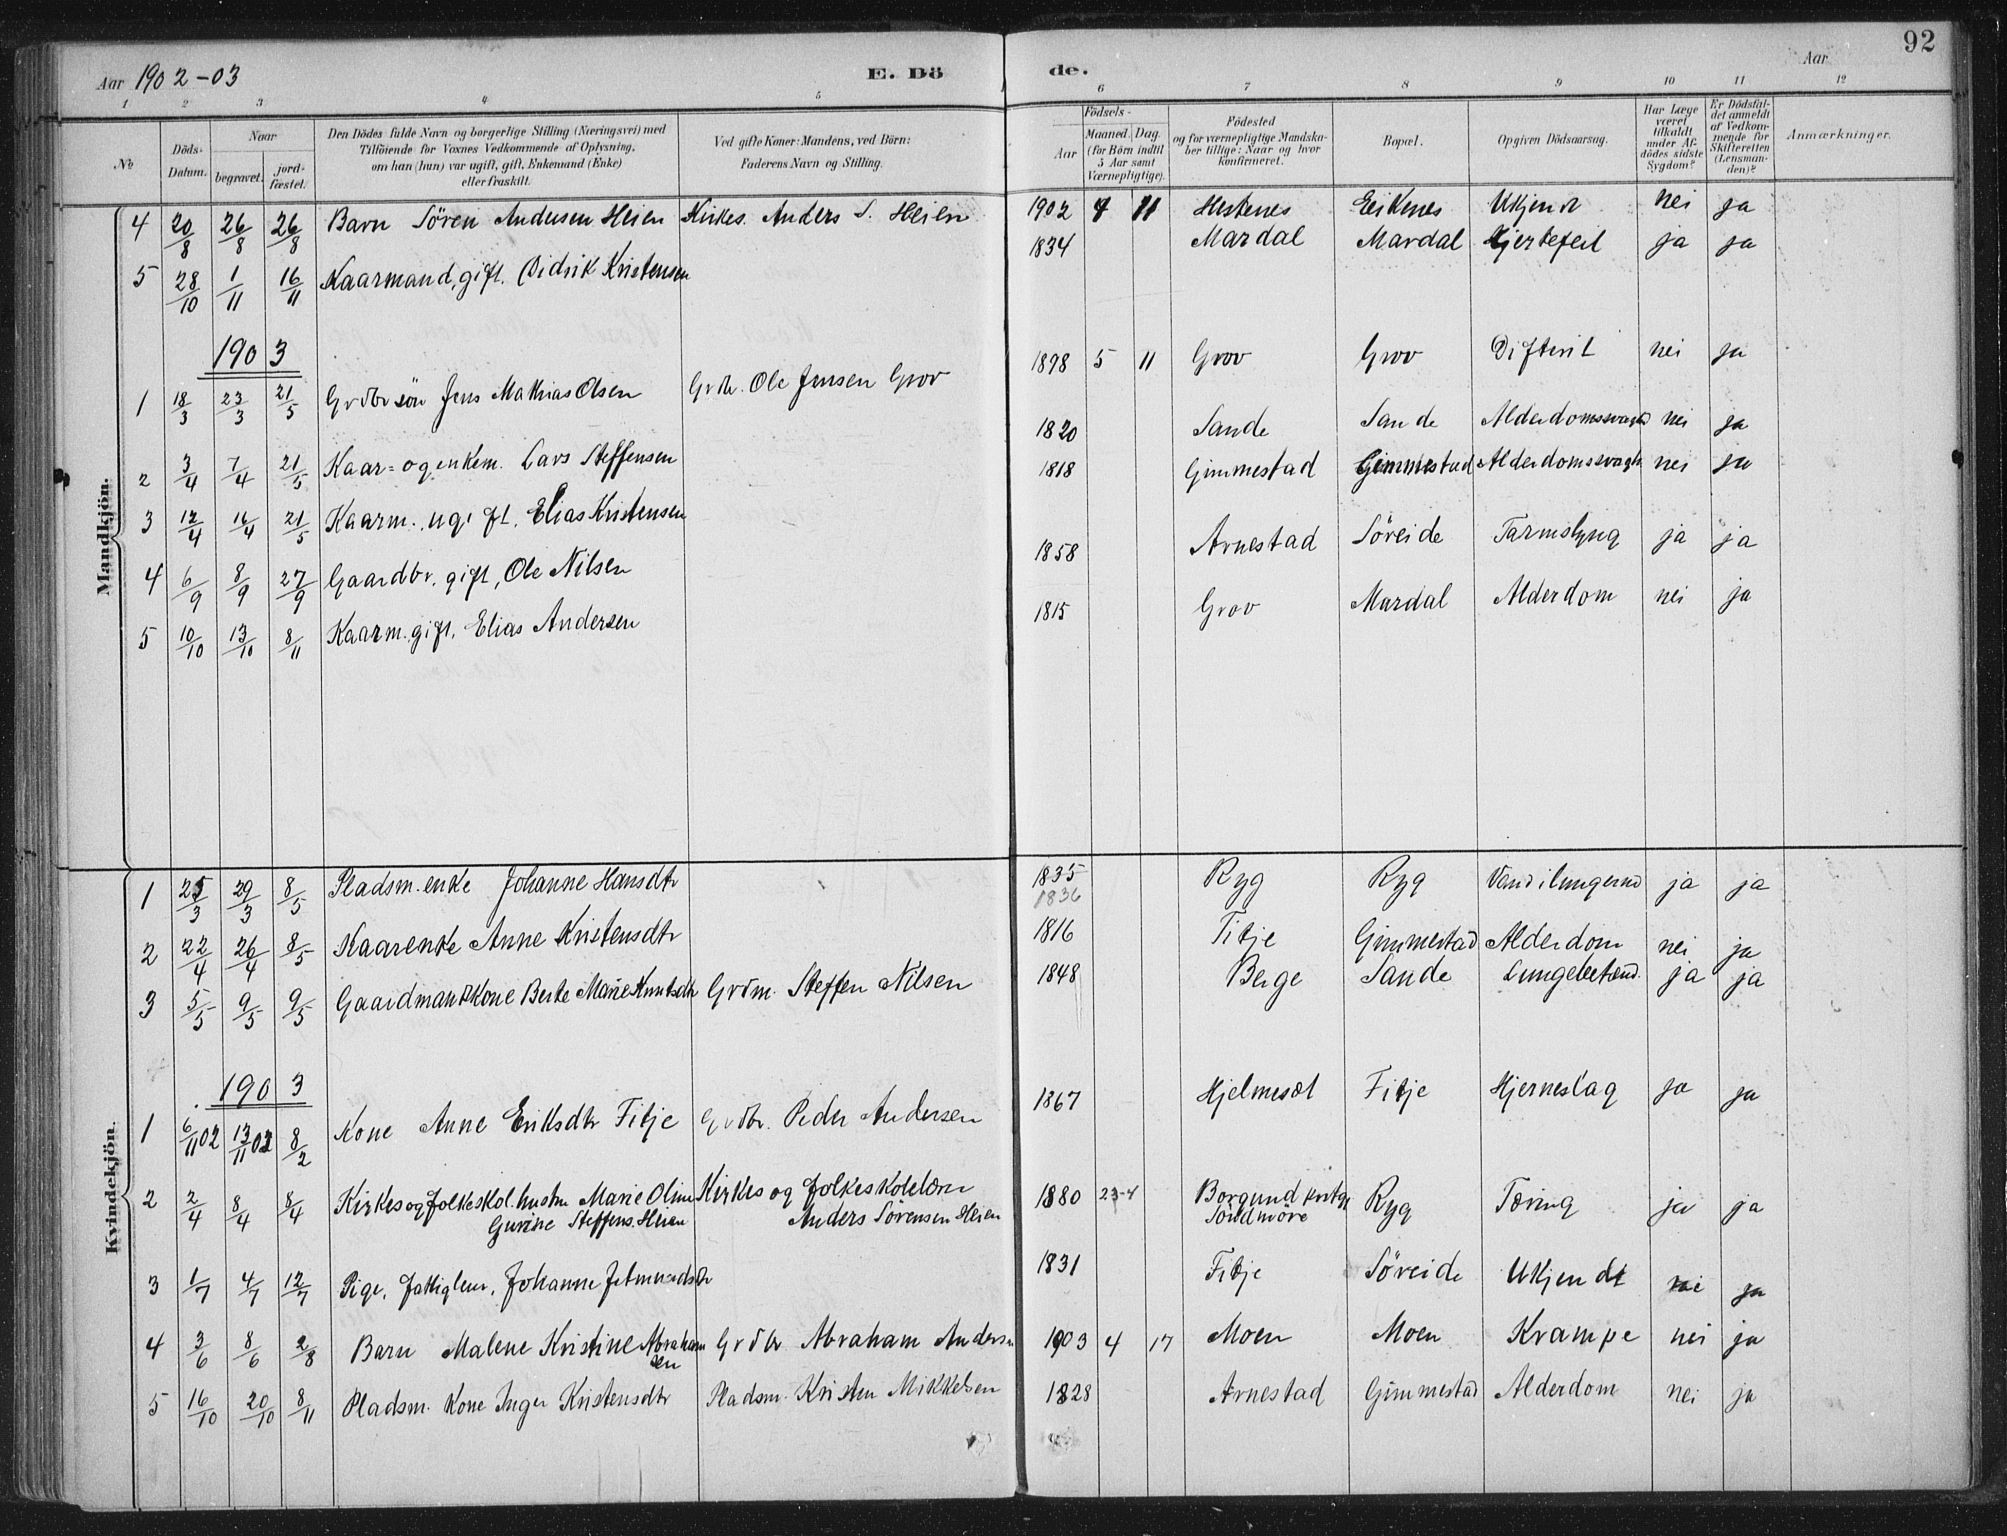 92
Aar 1902-03
E. Dö
de.
Aar
1 2 3 4 5 6 7 8 9 10 11 12
No
Döds-Datum.
Naar
begravet.
jord-fæstet.
Den Dödes fulde Navn og borgerlige Stilling (Næringsvei) med
Tilföiende for Voxnes Vedkommende af Oplysning,
om han (hun) var ugift, gift, Enkemand (Enke)
eller fraskilt.
Ved gifte Koner: Mandens, ved Börn:
Faderens Navn og Stilling.
Födsels-
Aar
Maaned.
Dag.
(for Börn indtil
5 Aar samt
Værnepligtige).
Födested
og for værnepligtige Mandska-
ber tillige: Naar og hvor
konfirmeret.
Bopæl.
Opgiven Dödsaarsag.
Har Læge
været
tilkaldt
under Af-
dödes sidste
Sygdom?
Er Dödsfal-
det anmeldt
af Vedkom-
mende for
Skifteretten
(Lensman-
den)?
Anmærkninger.
Mandkjön.
4 20/8 26/8 26/8 Barn Sören Andersen Heien Kirkes. Anders S. Heien 1902 4 11 Hestenes Eiknes Ukjendt nei ja
5 28/10 1/11 16/11 Kaarmand, gift. Didrik Kristensen 1834 Mardal Mardal Hjertefeil ja ja
1903
1 18/3 23/3 21/5 Grdbr sön Jens Mathias Olsen Grdbr. Ole Jensen Grov 1898 5 11 Grov Grov Difterit nei ja
2 3/4 7/4 21/5 Kaar= og enkem. Lars Steffensen 1820 Sande Sande Alderdomssvaghd nei ja
3 12/4 16/4 21/5 Kaarm. ugift. Elias Kristensen 1818 Gimmestad Gimmestad Alderdomssvagh nei ja
4 6/9 8/9 27/9 Gaardbr. gift, Ole Nilsen 1858 Arnestad Söreide Tarmslyng ja ja
5 10/10 13/10 8/11 Kaarm. gift. Elias Andersen 1815 Grov Mardal Alderdom nei ja
Kvindekjön.
1 25/3 29/3 8/5 Pladsm. enke Johanne Hansdtr 1835 Ryg Ryg Vand i lungerne ja ja
1836
2 22/4 26/4 8/5 Kaarenke Anne Kristensdtr 1816 Fitje Gimmestad Alderdom nei ja
3 5/5 9/5 9/5 Gaardmandkone Berte Marie Knutsdtr Grdm. Steffen Nilsen 1848 Berge Sande Lungebetænd. ja ja
1903
1 6/11 02 13/11 02 8/2 Kone Anne Eriksdtr Fitje Grdbr. Peder Andersen 1867 Hjelmeset Fitje Hjerneslag ja ja
2 2/4 8/4 8/4 Kirkes og folkeskol. hustru Marie Oline Kirkes og folkeskolelærer 1880 23-4 Borgund prstgj Ryg Tæring ja ja
Gurine Steffens. Heien Anders Sörensen Heien Söndmöre
3 1/7 4/7 12/7 Pige, fattiglem, Johanne Jetmundsdtr 1831 Fitje Söreide Ukjendt nei ja
4 3/6 8/6 2/8 Barn Malene Kristine Abraham Grdbr Abraham Andersn 1903 4 17 Moen Moen Krampe nei ja
sen
5 16/10 20/10 8/11 Pladsm. kone Inger Kristensdtr Pladsm. Kristen Mikkelsen 1828 Arnestad Gimmestad Alderdom nei ja